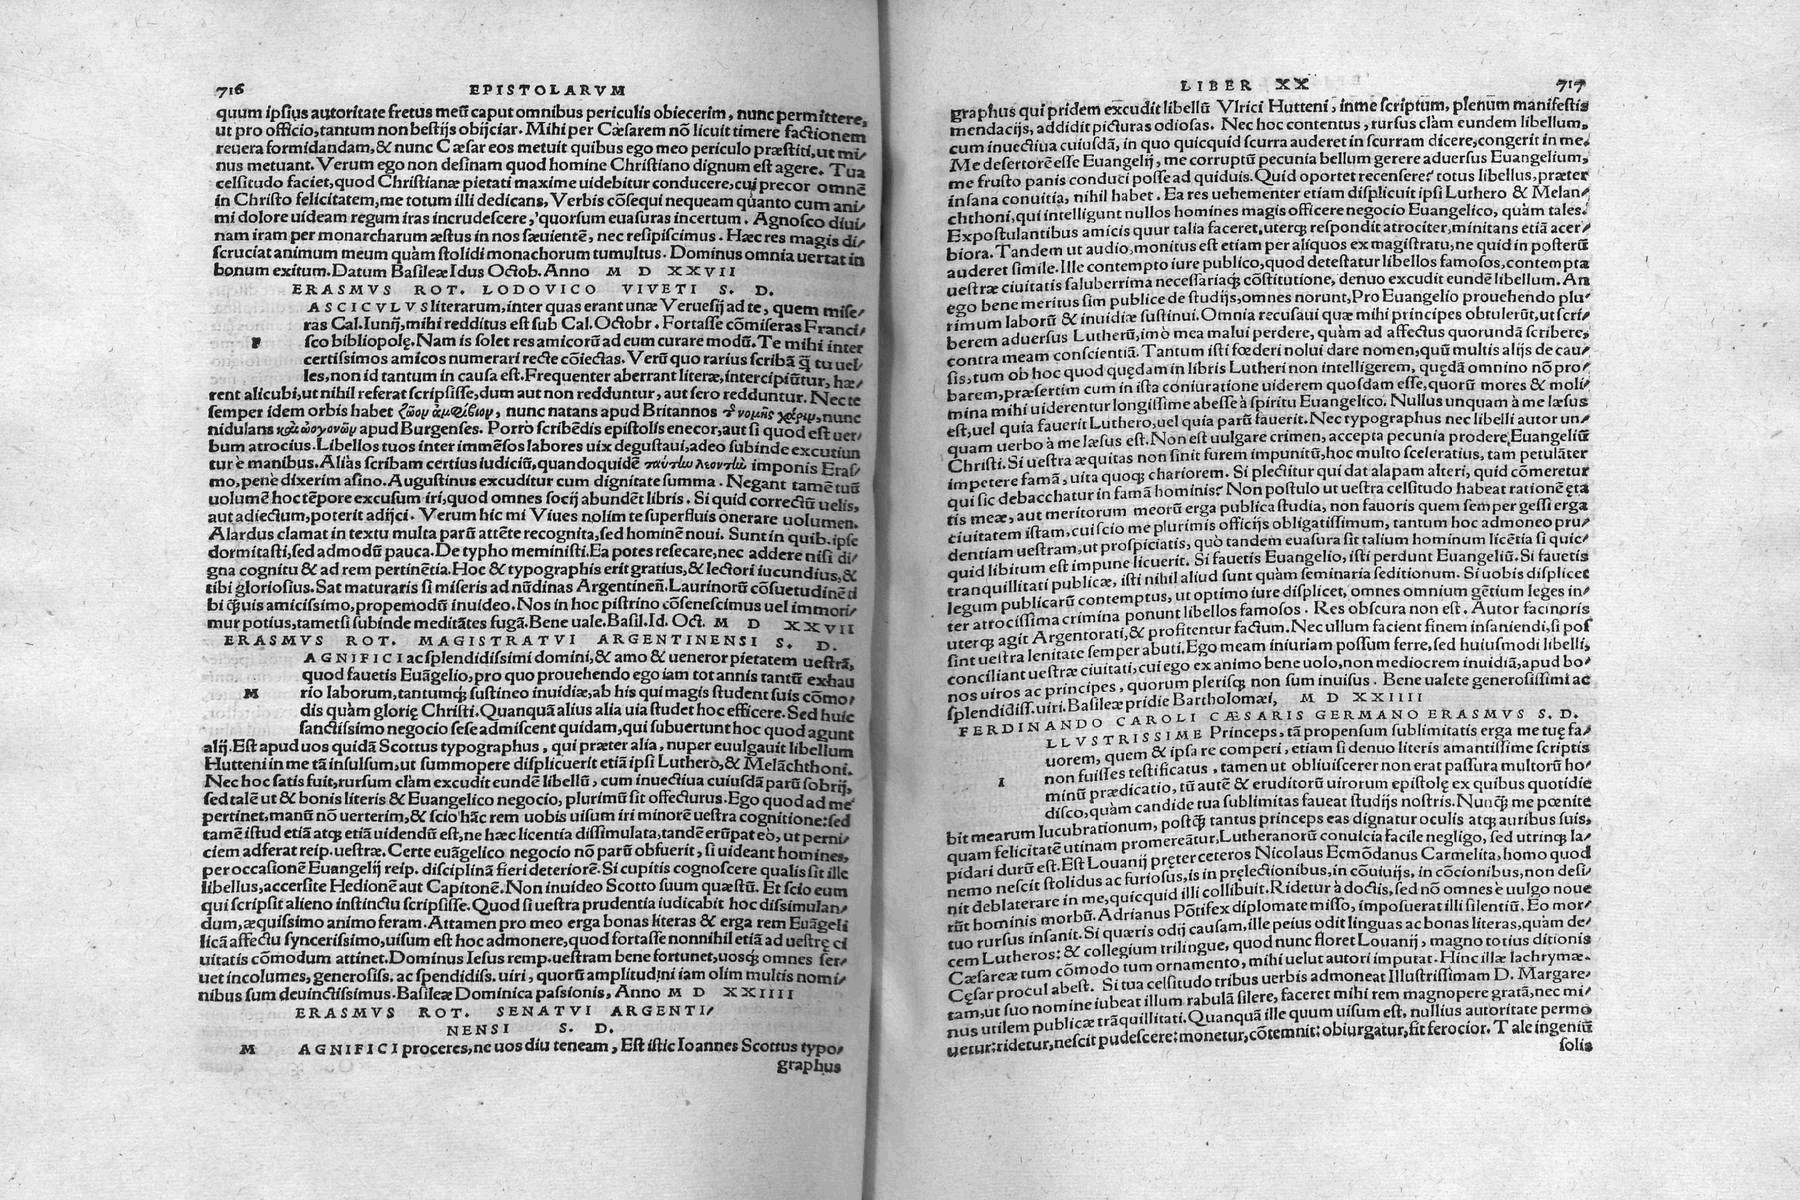 716 EPISTOLARVM
quum ipsius autoritate fretus meũ caput omnibus periculis obiecerim, nunc permittere,
ut pro officio, tantum non bestijs obijciar. Mihi per Cæsarem nõ licuit timere factionem
reuera formidandam, & nunc Cæsar eos metuit quibus ego meo periculo præstiti, ut mi/
nus metuant. Verum ego non desinam quod homine Christiano dignum est agere. Tua
celsitudo faciet, quod Christianæ pietati maxime uidebitur conducere, cui precor omnẽ
in Christo felicitatem, me totum illi dedicans, Verbis cõsequi nequeam quanto cum ani/
mi dolore uideam regum iras incrudescere, quorsum euasuras incertum. Agnosco diui/
nam iram per monarcharum æstus in nos sæuientẽ, nec resipiscimus. Hæc res magis di/
scruciat animum meum quàm stolidi monachorum tumultus. Dominus omnia uertat in
bonum exitum. Datum Basileæ Idus Octob. Anno M D XXVII
ERASMVS ROT. LODOVICO VIVETI S. D.
F ASCICVLVS literarum, inter quas erant unæ Veruesij ad te, quem mise/
ras Cal. Iunij, mihi redditus est sub Cal. Octobr. Fortasse cõmiseras Franci/
sco bibliopolę. Nam is solet res amicorũ ad eum curare modũ. Te mihi inter
certissimos amicos numerari recte cõiectas. Verũ quo rarius scribã q̃ tu uel/
les, non id tantum in causa est. Frequenter aberrant literæ, intercipiũtur, hæ/
rent alicubi, ut nihil referat scripsisse, dum aut non redduntur, aut sero redduntur. Nec te
semper idem orbis habet ζῶον ἀμφίβιον, nunc natans apud Britannos, nunc
nidulans apud Burgenses. Porrò scribẽdis epistolis enecor, aut si quod est uer/
bum atrocius. Libellos tuos inter immẽsos labores uix degustaui, adeo subinde excutiun
tur è manibus. Aliàs scribam certius iudiciũ, quandoquidẽ imponis Eras/
mo, penè dixerim asino. Augustinus excuditur cum dignitate summa. Negant tamẽ tuũ
uolumẽ hoc tẽpore excusum iri, quod omnes socij abundẽt libris. Si quid correctũ uelis,
aut adiectum, poterit adijci. Verum hic mi Viues nolim te superfluis onerare uolumen.
Alardus clamat in textu multa parũ attẽte recognita, sed hominẽ noui. Sunt in quib. ipse
dormitasti, sed admodũ pauca. De typho meministi. Ea potes resecare, nec addere nisi di/
gna cognitu & ad rem pertinẽtia. Hoc & typographis erit gratius, & lectori iucundius, &
tibi gloriosius. Sat maturaris si miseris ad nũdinas Argentineñ. Laurinorũ cõsuetudinẽ ti
bi q̃uis amicissimo, propemodũ inuideo. Nos in hoc pistrino cõsenescimus uel immori/
mur potius, tametsi subinde meditãtes fugã. Bene uale. Basil. Id. Oct. M D XXVII
ERASMVS ROT. MAGISTRATVI ARGENTINENSI S. D.
M AGNIFICI ac splendidissimi domini, & amo & ueneror pietatem uestrã,
quod fauetis Euãgelio, pro quo prouehendo ego iam tot annis tantũ exhau
rio laborum, tantumq; sustineo inuidiæ, ab his qui magis student suis cõmo/
dis quàm glorię Christi. Quanquã alius alia uia studet hoc efficere. Sed huic
sanctissimo negocio sese admiscent quidam, qui subuertunt hoc quod agunt
alij. Est apud uos quidã Scottus typographus, qui præter alia, nuper euulgauit libellum
Hutteni in me tã insulsum, ut summopere displicuerit etiã ipsi Luthero, & Melãchthoni.
Nec hoc satis fuit, rursum clàm excudit eundẽ libellũ, cum inuectiua cuiusdã parũ sobrij,
sed talẽ ut & bonis literis & Euangelico negocio, plurimũ sit offecturus. Ego quod ad me
pertinet, manũ nõ uerterim, & scio hãc rem uobis uisum iri minorẽ uestra cognitione: sed
tamẽ istud etiã atq; etiã uidendũ est, ne hæc licentia dissimulata, tandẽ erũpat eò, ut perni/
ciem adferat reip. uestræ. Certe euãgelico negocio nõ parũ obfuerit, si uideant homines,
per occasionẽ Euangelij reip. disciplinã fieri deteriorẽ. Si cupitis cognoscere qualis sit ille
libellus, accersite Hedionẽ aut Capitonẽ. Non inuideo Scotto suum quæstũ. Et scio eum
qui scripsit alieno instinctu scripsisse. Quod si uestra prudentia iudicabit hoc dissimulan/
dum, æquissimo animo feram. Attamen pro meo erga bonas literas & erga rem Euãgeli
licã affectu syncerissimo, uisum est hoc admonere, quod fortasse nonnihil etiã ad uestrę ci
uitatis cõmodum attinet. Dominus Iesus remp. uestram bene fortunet, uosq; omnes ser/
uet incolumes, generosiss. ac spendidiss. uiri, quorũ amplitudini iam olim multis nomi/
nibus sum deuinctissimus. Basileæ Dominica passionis, Anno M D XXIIII
ERASMVS ROT. SENATVI ARGENTI/
NENSI S. D.
M AGNIFICI proceres, ne uos diu teneam, Est istic Ioannes Scottus typo/
graphus
LIBER XX 717
graphus qui pridem excudit libellũ Vlrici Hutteni, in me scriptum, plenum manifestis
mendacijs, addidit picturas odiosas. Nec hoc contentus, rursus clàm eundem libellum,
cum inuectiua cuiusdã, in quo quicquid scurra auderet in scurram dicere, congerit in me.
Me desertorẽ esse Euangelij, me corruptũ pecunia bellum gerere aduersus Euangelium,
me frusto panis conduci posse ad quiduis. Quid oportet recensere? totus libellus, præter
insana conuitia, nihil habet. Ea res uehementer etiam displicuit ipsi Luthero & Melan/
chthoni, qui intelligunt nullos homines magis officere negocio Euangelico, quàm tales.
Expostulantibus amicis quur talia faceret, uterq; respondit atrociter, minitans etiã acer/
biora. Tandem ut audio, monitus est etiam per aliquos ex magistratu, ne quid in posterũ
auderet simile. Ille contempto iure publico, quod detestatur libellos famosos, contempta
uestræ ciuitatis saluberrima necessariaq; cõstitutione, denuo excudit eundẽ libellum. An
ego bene meritus sim publice de studijs, omnes norunt, Pro Euangelio prouehendo plu/
rimum laborũ & inuidiæ sustinui. Omnia recusaui quæ mihi principes obtulerũt, ut scri/
berem aduersus Lutherũ, imò mea malui perdere, quàm ad affectus quorundã scribere,
contra meam conscientiã. Tantum isti fœderi nolui dare nomen, quũ multis alijs de cau/
sis, tum ob hoc quod quędam in libris Lutheri non intelligerem, quędã omnino nõ pro/
barem, præsertim cum in ista coniuratione uiderem quosdam esse, quorũ mores & moli/
mina mihi uiderentur longissime abesse à spiritu Euangelico. Nullus unquam à me læsus
est, uel quia fauerit Luthero, uel quia parũ fauerit. Nec typographus nec libelli autor un/
quam uerbo à me læsus est. Non est uulgare crimen, accepta pecunia prodere Euangeliũ
Christi. Si uestra æquitas non sinit furem impunitũ, hoc multo sceleratius, tam petulãter
impetere famã, uita quoq; chariorem. Si plectitur qui dat alapam alteri, quid cõmeretur
qui sic debacchatur in famã hominis? Non postulo ut uestra celsitudo habeat rationẽ ęta
tis meæ, aut meritorum meorũ erga publica studia, non fauoris quem semper gessi erga
ciuitatem istam, cui scio me plurimis officijs obligatissimum, tantum hoc admoneo pru/
dentiam uestram, ut prospiciatis, quò tandem euasura sit talium hominum licẽtia si quic/
quid libitum est impune licuerit. Si fauetis Euangelio, isti perdunt Euangeliũ. Si fauetis
tranquillitati publicæ, isti nihil aliud sunt quàm seminaria seditionum. Si uobis displicet
legum publicarũ contemptus, ut optimo iure displicet, omnes omnium gẽtium leges in/
ter atrocissima crimina ponunt libellos famosos. Res obscura non est. Autor facinoris
uterq; agit Argentorati, & profitentur factum. Nec ullum facient finem insaniendi, si pos
sint uestra lenitate semper abuti. Ego meam iniuriam possum ferre, sed huiusmodi libelli,
conciliant uestræ ciuitati, cui ego ex animo bene uolo, non mediocrem inuidiã, apud bo/
nos uiros ac principes, quorum plerisq; non sum inuisus. Bene ualete generosissimi ac
splendidiss. uiri. Basileæ pridie Bartholomæi, M D XXIIII
FERDINANDO CAROLI CÆSARIS GERMANO ERASMVS S. D.
I LLVSTRISSIME Princeps, tã propensum sublimitatis erga me tuę fa/
uorem, quem & ipsa re comperi, etiam si denuo literis amantissime scriptis
non fuisses testificatus, tamen ut obliuiscerer non erat passura multorũ ho/
minũ prædicatio, tũ autẽ & eruditorũ uirorum epistolę ex quibus quotidie
disco, quàm candide tua sublimitas faueat studijs nostris. Nunq; me pœnite
bit mearum lucubrationum, postq̃ tantus princeps eas dignatur oculis atq; auribus suis,
quam felicitatẽ utinam promereãtur. Lutheranorũ conuicia facile negligo, sed utrinq; la/
pidari durũ est. Est Louanij pręter ceteros Nicolaus Ecmõdanus Carmelita, homo quod
nemo nescit stolidus ac furiosus, is in pręlectionibus, in cõuiuijs, in cõcionibus, non desi/
nit deblaterare in me, quicquid illi collibuit. Ridetur à doctis, sed nõ omnes è uulgo noue
rũt hominis morbũ. Adrianus Põtifex diplomate misso, imposuerat illi silentiũ. Eo mor/
tuo rursus insanit. Si quæris odij causam, ille peius odit linguas ac bonas literas, quàm de/
cem Lutheros: & collegium trilingue, quod nunc floret Louanij, magno totius ditionis
Cæsareæ tum cõmodo tum ornamento, mihi uelut autori imputat. Hinc illæ lachrymæ.
Cęsar procul abest. Si tua celsitudo tribus uerbis admoneat Illustrissimam D. Margare/
tam, ut suo nomine iubeat illum rabulã silere, faceret mihi rem magnopere gratã, nec mi/
nus utilem publicæ trãquillitati. Quanquã ille quum uisum est, nullius autoritate permo
uetur: ridetur, nescit pudescere: monetur, cõtemnit: obiurgatur, fit ferocior. Tale ingeniũ
solis